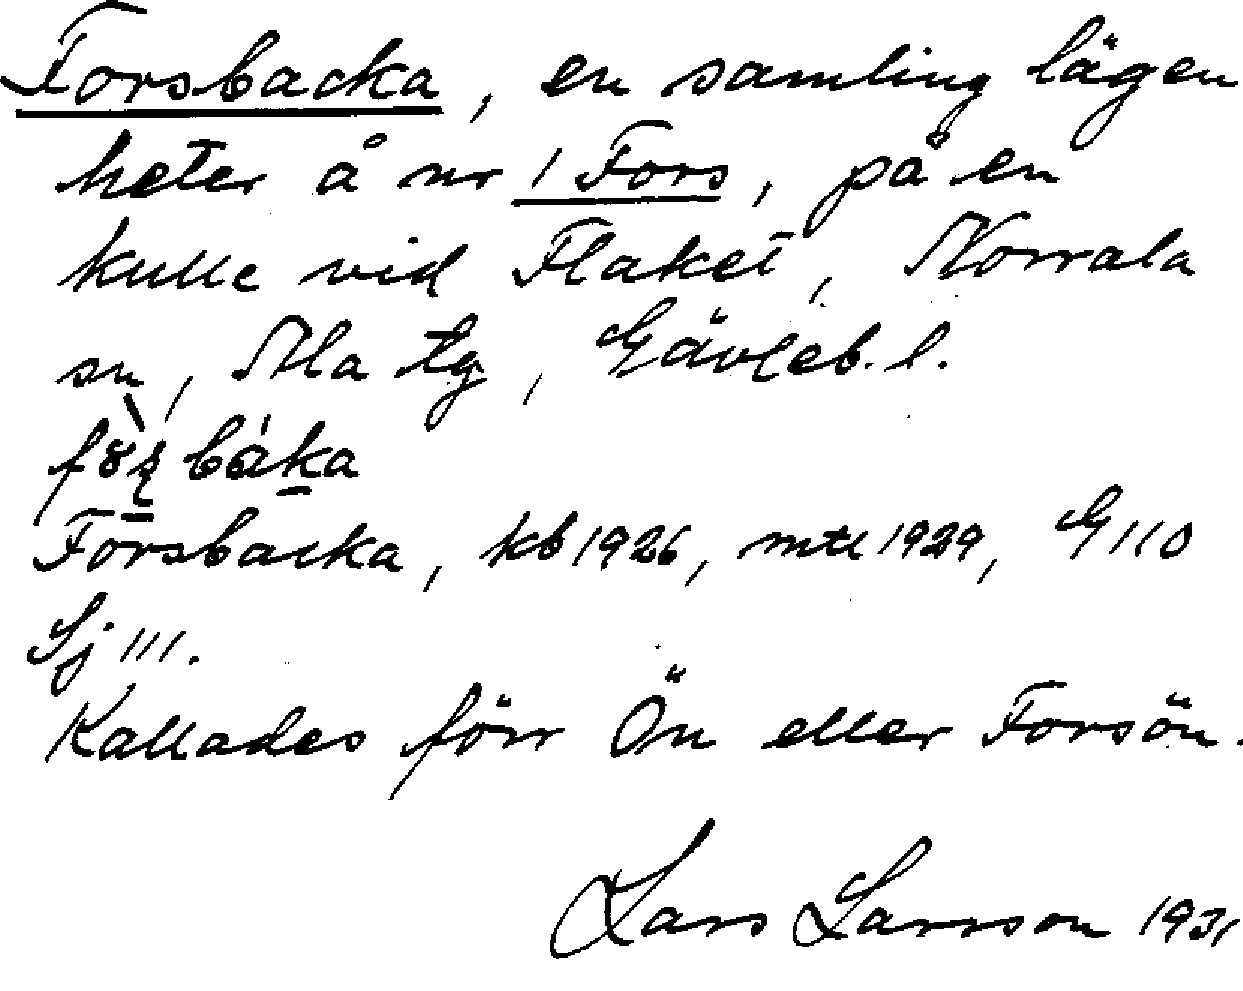 Forsbacka, en samling lägen
heter å nr 1 Fors, på en
kulle vid Flaket, Norrala
sn, Ala tg, Gävleb. l.
Forsbacka, kb 1926, mtl 1929, G 110
Sj 111.
Kallades förr Ön eller Forsön.
Lars Larsson 1931